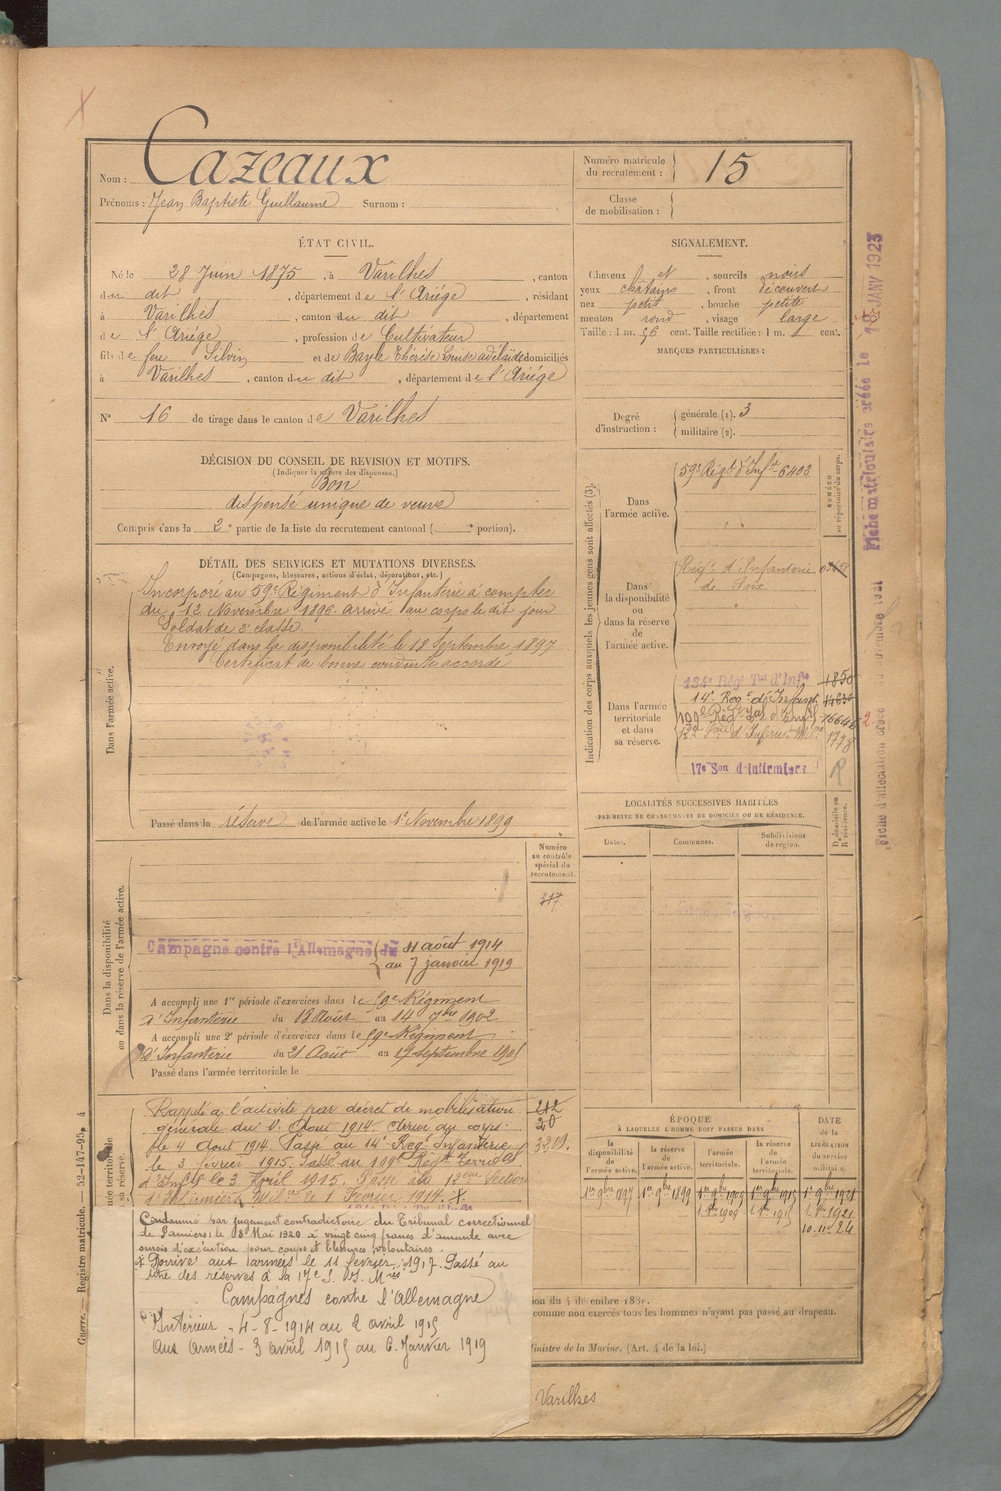 Nom : Cazeaux
Prénoms : Jean Baptiste Guillaume Surnom :
Numéro matricule du recrutement : 15
Classe de mobilisation :
ÉTAT CIVIL.
Né le 28 Juin 1875, à Varilhes, canton
du dit, département de l'Ariége, résidant
à Varilhes, canton du dit, département
de l'Ariége, profession de Cultivateur
fils de feu Silvin et de Bayle Thérèse Louise adélaïde domiciliés
à Varilhes, canton du dit, département de l'Ariége
N° 16 de tirage dans le canton de Varilhes
SIGNALEMENT.
Cheveux et, sourcils noirs
yeux châtains, front découvert
nez petit, bouche petite
menton rond, visage large
Taille : 1 m. 56 cent. Taille rectifiée : 1 m. cent.
MARQUES PARTICULIÈRES :
Degré d'instruction : générale (1). 3
militaire (2).
DÉCISION DU CONSEIL DE REVISION ET MOTIFS.
(Indiquer la nature des dispenses.)
Bon
dispensé unique de veuve
Compris dans la 2e partie de la liste du recrutement cantonal ( e portion).
DÉTAIL DES SERVICES ET MUTATIONS DIVERSES.
(Campagnes, blessures, actions d'éclat, décorations, etc.)
Dans l'armée active.
Incorporé au 59e Régiment d'Infanterie à compter
du 12 Novembre 1896. arrivé au corps le dit jour
Soldat de 2e classe.
Envoyé dans la disponibilité le 18 Septembre 1897
Certificat de bonne conduite accordé
Passé dans la réserve de l'armée active le 1er Novembre 1899
Indication des corps auxquels les jeunes gens sont affectés (3).
NUMÉRO au répertoire du corps.
Dans l'armée active. 59e Régt d'Infie 6403
Dans la disponibilité ou dans la réserve de l'armée active.
Regt d'Infanterie
de Foix
Dans l'armée territoriale et dans sa réserve.
134e Régt Tal d'Infie 1850
14e Regt d'Infant
109e Regt Tal d'Inf
1778
17e Son d'Infirmiers
LOCALITÉS SUCCESSIVES HABITÉES
PAR SUITE DE CHANGEMENTS DE DOMICILE OU DE RÉSIDENCE.
Dates. Communes. Subdivisions de région. D. domicile ou R. résidence.
Dans la disponibilité ou dans la réserve de l'armée active.
Numéro au contrôle spécial du recrutement.
317
Campagne contre l'Allemagne du 11 août 1914
au 7 janvier 1919
A accompli une 1re période d'exercices dans le 59e Régiment
d'Infanterie du 18 Août au 14 7bre 1902
A accompli une 2e période d'exercices dans le 59e Régiment
d'Infanterie du 21 Août au 17 Septembre 1905
Passé dans l'armée territoriale le
Rappelé à l'activité par décret de mobilisation
générale du 1er Aout 1914. Arrivé au corps
le 4 Aout 1914. Passé au 14e Regt Infanterie
le 3 fevrier 1915. Passé au 109e Regt Territal
d'Infie le 3 Avril 1915. Passé à la 12eme Section
d'Infirmiers Milres le 1 Fevrier 1917. X
212
20
3209.
Condamné par jugement contradictoire du Tribunal correctionnel
de Pamiers, le 8 Mai 1920 à vingt cinq francs d'amende avec
sursis d'exécution pour coups et blessures volontaires.
X Arrivé aux armées le 11 fevrier 1917. Passé au
titre des réserves à la 17e S. I. Mres
Campagnes contre l'Allemagne
Intérieur - 4-8-1914 au 2 avril 1915
Aux armées - 3 avril 1915 au 6 Janvier 1919
ÉPOQUE
À LAQUELLE L'HOMME DOIT PASSER DANS
la disponibilité de l'armée active. la réserve de l'armée active. l'armée territoriale. la réserve de l'armée territoriale.
DATE de la LIBÉRATION du service militaire.
1er 9bre 1897 1er 9bre 1899 1er 9bre 1909 1er 9bre 1915 1er 9bre 1921
1. 8bre 1909 1. 8bre 1915 1. 8bre 1921
10 nov 24
comme non exercés tous les hommes n'ayant pas passé au drapeau.
Ministre de la Marine. (Art. 4 de la loi.)
Varilhes
Guerre. — Registre matricule. — 52-147-95. 4
Fiche matriculaire créée le 18 JANV 1923